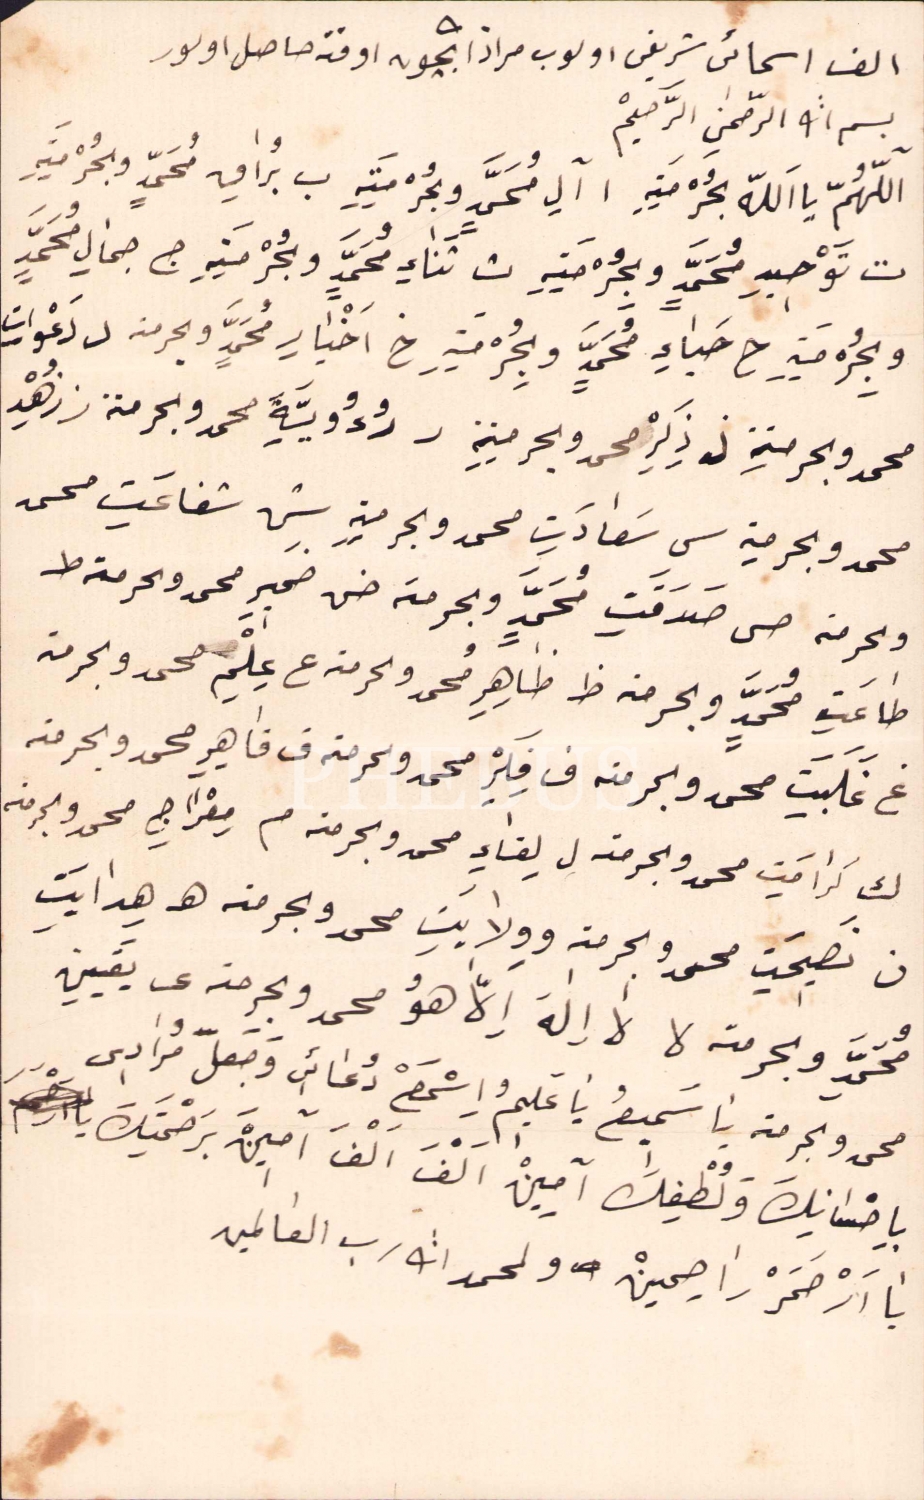 الف اسمائى شريفى اولوب مراد ايچون اوقنه حاصل اولور
بسم الله الرّحمٰن الرَّحيمْ
اَللّهُمَّ يا اَللّه بِحُرْمَتِهِ ا آلِ مُحَمَّدٍ وبِحُرْمَتِهِ ب بُراقِ مُحَمَّدٍ وبِحُرْمَتِهِ
ت تَوْحِيدِ مُحَمَّدٍ وبِحُرْمَتِهِ ث ثَنَاءِ مُحَمَّدٍ وبِحُرْمَتِهِ ج جمالِ مُحَمَّدٍ
وبِحُرْمَتِهِ ح حَيَاءِ مُحَمَّدٍ وبِحُرْمَتِهِ خ اَخْيَارِ مُحَمَّدٍ وبحرمته د دَعْوَاتِ
محمد وبحرمتهِ ذ ذِكِرْ محمد وبحرمتهِ ر رُءُويَّةِ محمد وبحرمته ز زُهْدِ
محمد وبحرمته س سَعَادَتِ محمد وبحرمتهِ ش شفاعَتِ محمد
وبحرمته ص صَدَقَتِ مُحَمَّدٍ وبحرمته ض ضَمِيرِ محمد وبحرمته ط
طاعَتِ مُحَمَّدٍ وبحرمته ظ ظَاهِرِ مُحمد وبحرمته ع عِلْمِ محمد وبحرمته
غ غَلَبَتِ محمد وبحرمته ف فِكِرْ محمد وبحرمته ق قاهِرِ محمد وبحرمته
ك كَرامَتِ محمد وبحرمته ل لِقاءِ محمد وبحرمته م مِعْراجِ محمد وبحرمته
ن نَصِيحَتِ محمد وبحرمته و وِلايَتِ محمد وبحرمته هـ هِدايَتِ
مُحَمَّدٍ وبحرمته لا لا اِلهَ اِلاَّ هُوَ محمد وبحرمته ى يَقِينِ
محمد وبحرمته يا سَمِيعُ يا عَلِيمُ اِسْمَعْ دُعائى وَجَعَلْ مُرَادِى
بِاِحْسَانِكَ وَلُطْفِكَ آمِينْ اَلْفَ اَلْفَ آمِينْ بِرَحْمَتِكَ
يا اَرْحَمَرْ راحِمِينْ ولحمد الله رب العالمين
PHEBUS